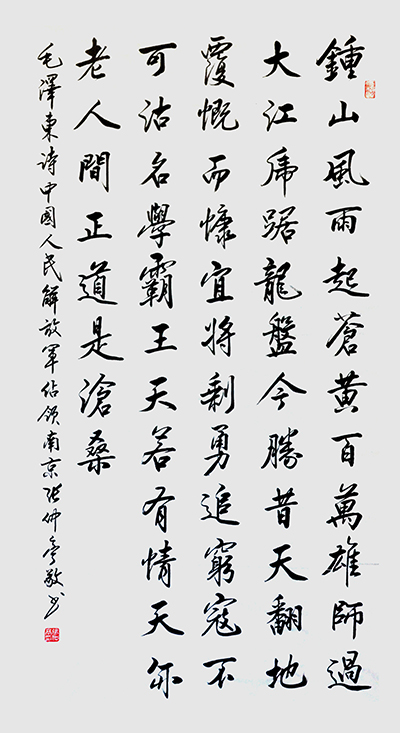 鍾山風雨起蒼黄百萬雄師過
大江虎踞龍盤今勝昔天翻地
覆慨而慷宜將剩勇追窮寇不
可沽名學霸王天若有情天亦
老人間正道是滄桑
毛澤東诗中國人民解放軍佔领南京张仲亭敬书